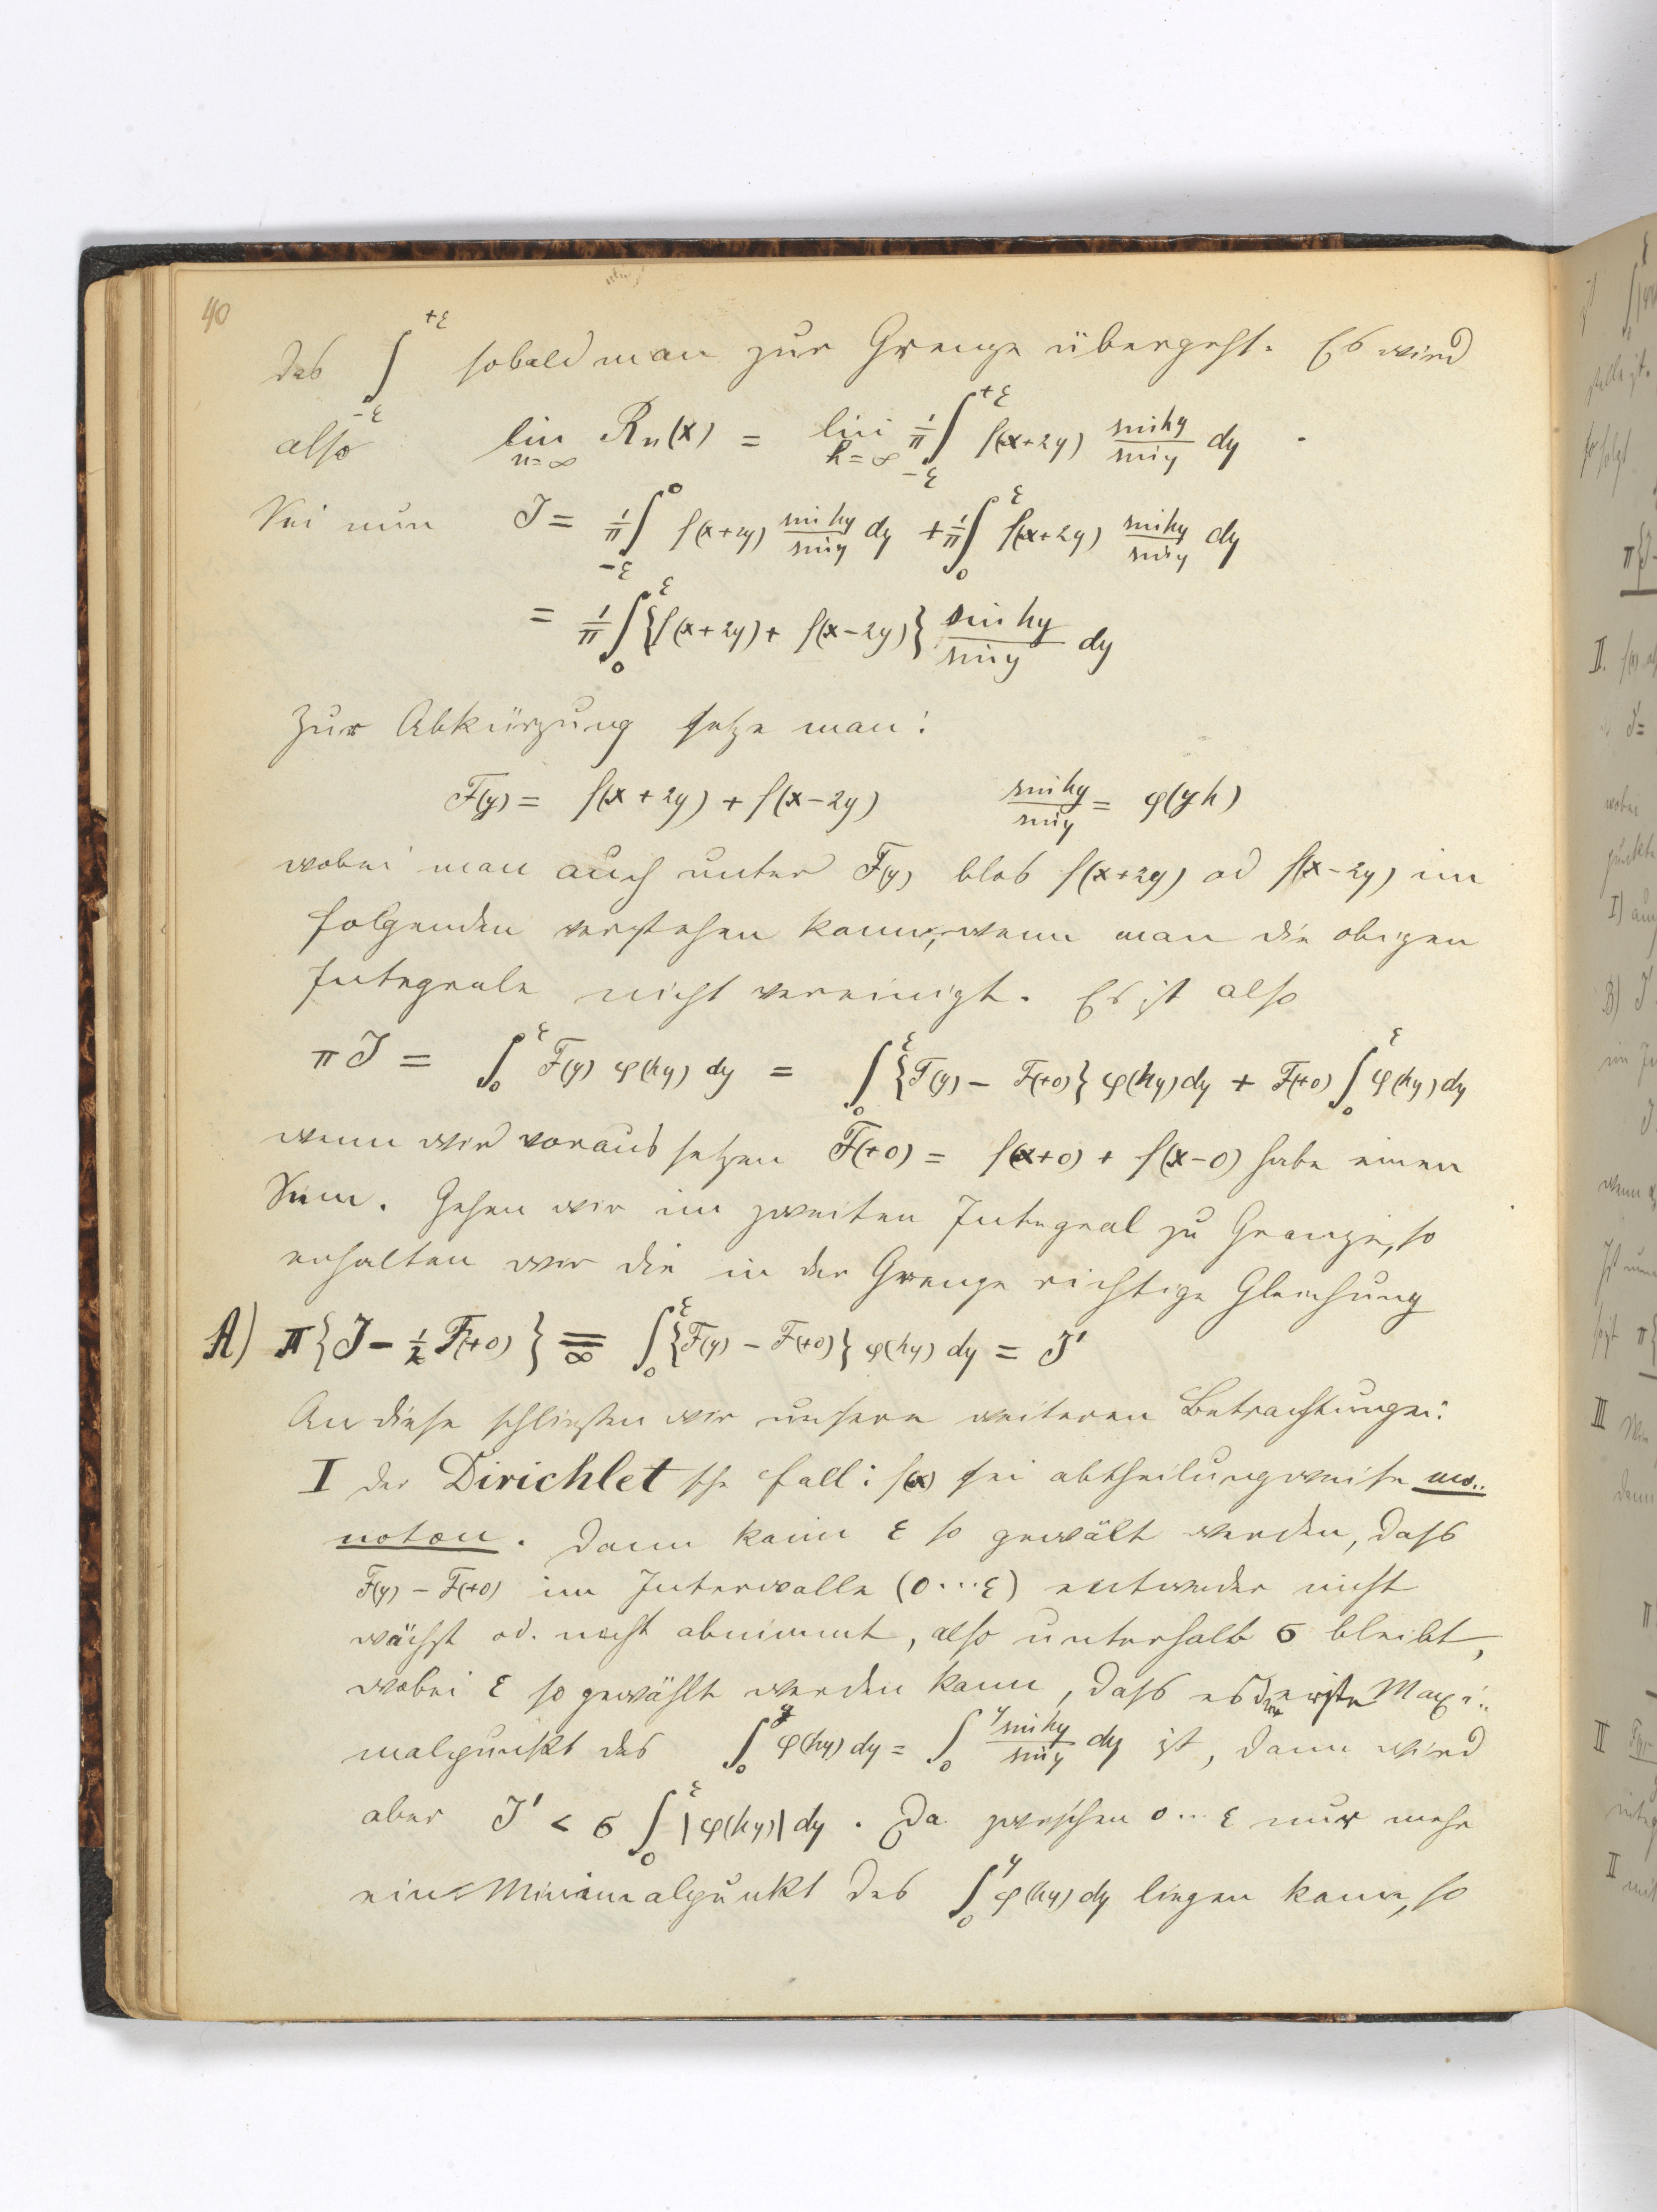 40
das ∫_{-ε}^{+ε} sobald man zur Grenze übergeht. Es wird
also lim_{n=∞} R_n(x) = lim_{h=∞} 1/π ∫_{-ε}^{+ε} f(x+2y) sin hy / sin y dy.
Sei nun J = 1/π ∫_{-ε}^{0} f(x+2y) sin hy / sin y dy + 1/π ∫_{0}^{ε} f(x+2y) sin hy / sin y dy
= 1/π ∫_{0}^{ε} {f(x+2y) + f(x-2y)} sin hy / sin y dy
Zur Abkürzung setze man:
F(y) = f(x+2y) + f(x-2y) sin hy / sin y = φ(yh)
wobei man auch unter F(y) blos f(x+2y) od f(x-2y) im
folgenden verstehen kann, wenn man die obigen
Integrale nicht vereinigt. Es ist also
πJ = ∫_{0}^{ε} F(y) φ(hy) dy = ∫_{0}^{ε} {F(y) - F(+0)} φ(hy) dy + F(+0) ∫_{0}^{ε} φ(hy) dy
wenn wir voraus setzen F(+0) = f(x+0) + f(x-0) habe einen
Sinn. Gehen wir im zweiten Integral zu Grenze, so
erhalten wir die in der Grenze richtige Gleichung
A) π{J - 1/2 F(+0)} =_{∞} ∫_{0}^{ε} {F(y) - F(+0)} φ(hy) dy = J'
An diese schließen wir unsere weiteren Betrachtungen:
I der Dirichlet sche Fall: f(x) sei abtheilungsweise mo..
noton. Dann kann ε so gewält werden, dass
F(y) - F(+0) im Intervalle (0...ε) entweder nicht
wächst od. nicht abnimmt, also unterhalb σ bleibt,
wobei ε so gewählt werden kann, dass es der erste Maxi..
malpunkt des ∫_{0}^{y} φ(hy) dy = ∫_{0}^{y} sin hy / sin y dy ist, dann wird
aber J' < σ ∫_{0}^{ε} |φ(hy)| dy. Da zwischen 0...ε nur mehr
ein Minimalpunkt des ∫_{0}^{y} φ(hy) dy liegen kann, so